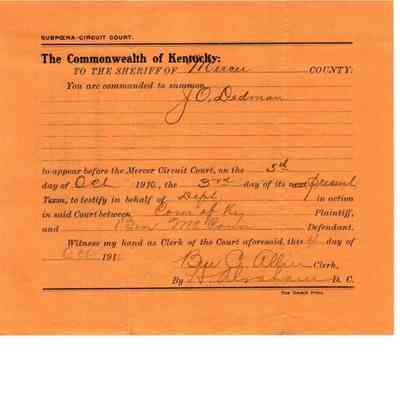 SUBPŒNA-CIRCUIT COURT.
The Commonwealth of Kentucky:
TO THE SHERIFF OF Mercer COUNTY:
You are commanded to summon
J O, Dedman
to appear before the Mercer Circuit Court, on the 5th
day of Oct 1910, the 3rd day of its next present
Term, to testify in behalf of Deft in action
in said Court between Com of Ky Plaintiff,
and Ben Defendant.
Witness my hand as Clerk of the Court aforesaid, this day of
Oct 191
Ben C. Allin Clerk,
By D. C.